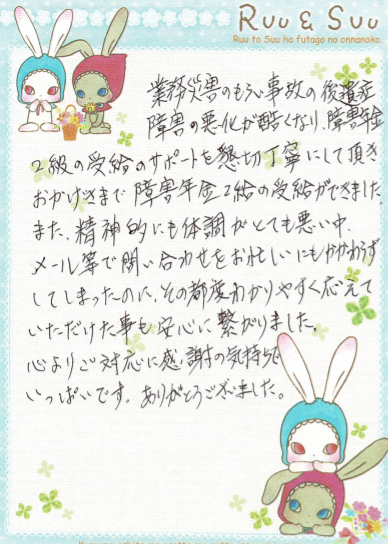 Ruu & Suu
Ruu to Suu ha futago no onnanoko.
業務災害のもらい事故の後遺症
障害の悪化が酷くなり、障害年金
2級の受給のサポートを懇切丁寧にして頂き
おかげさまで障害年金2給の受給ができました。
また、精神的にも体調がとても悪い中、
メール等で問い合わせをお忙しいにもかかわらず
してしまったのに、その都度わかりやすく応えて
いただけた事も安心に繋がりました。
心よりご対応に感謝の気持ちで
いっぱいです。ありがとうございました。